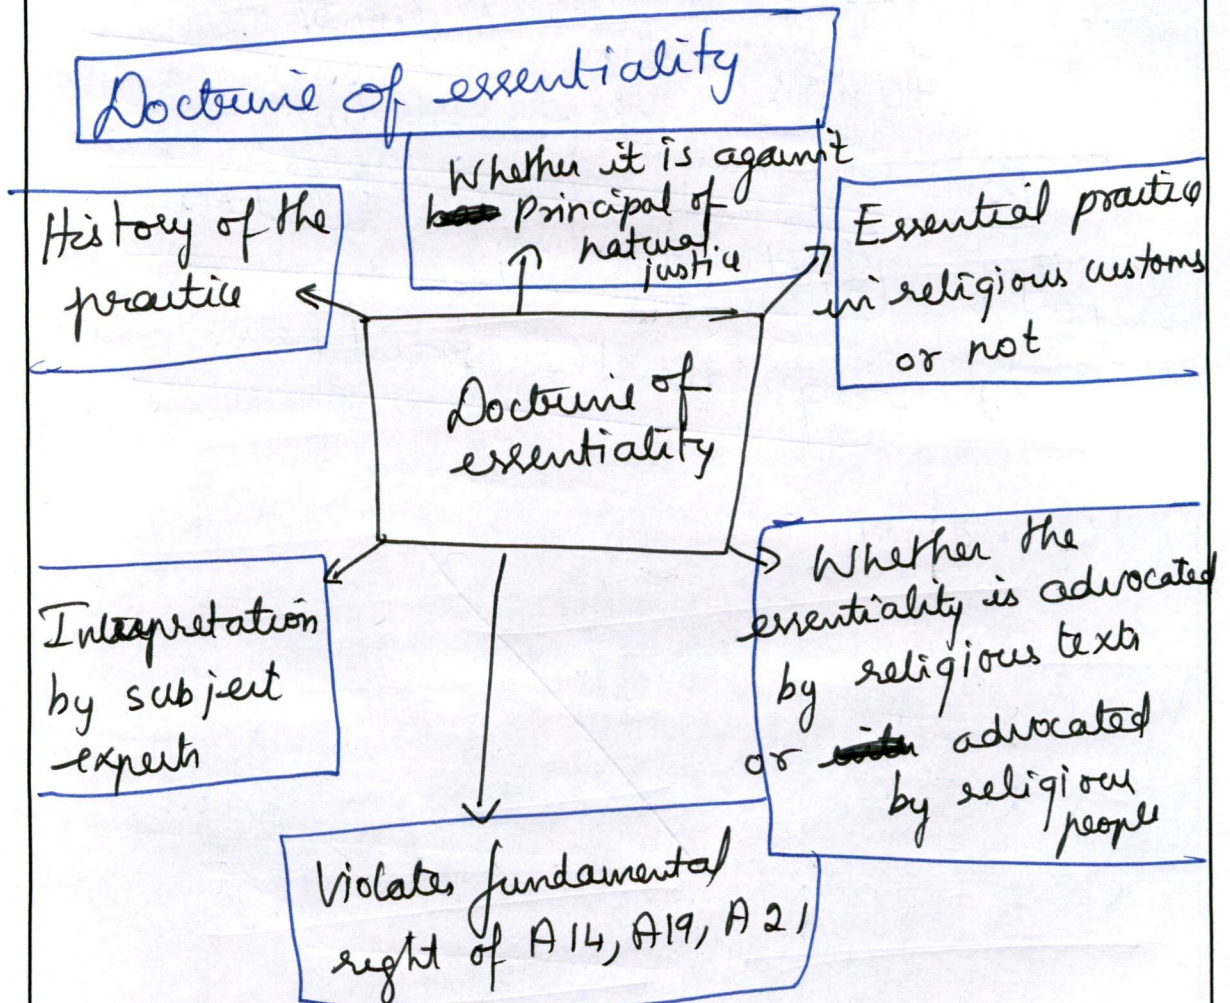 Doctrine of essentiality
Whether it is against
principal of
natural
justice
History of the
practice
Essential practice
in religious customs
or not
Doctrine of
essentiality
Interpretation
by subject
experts
Whether the
essentiality is advocated
by religious texts
or advocated
by religious
people
Violates fundamental
right of A14, A19, A21